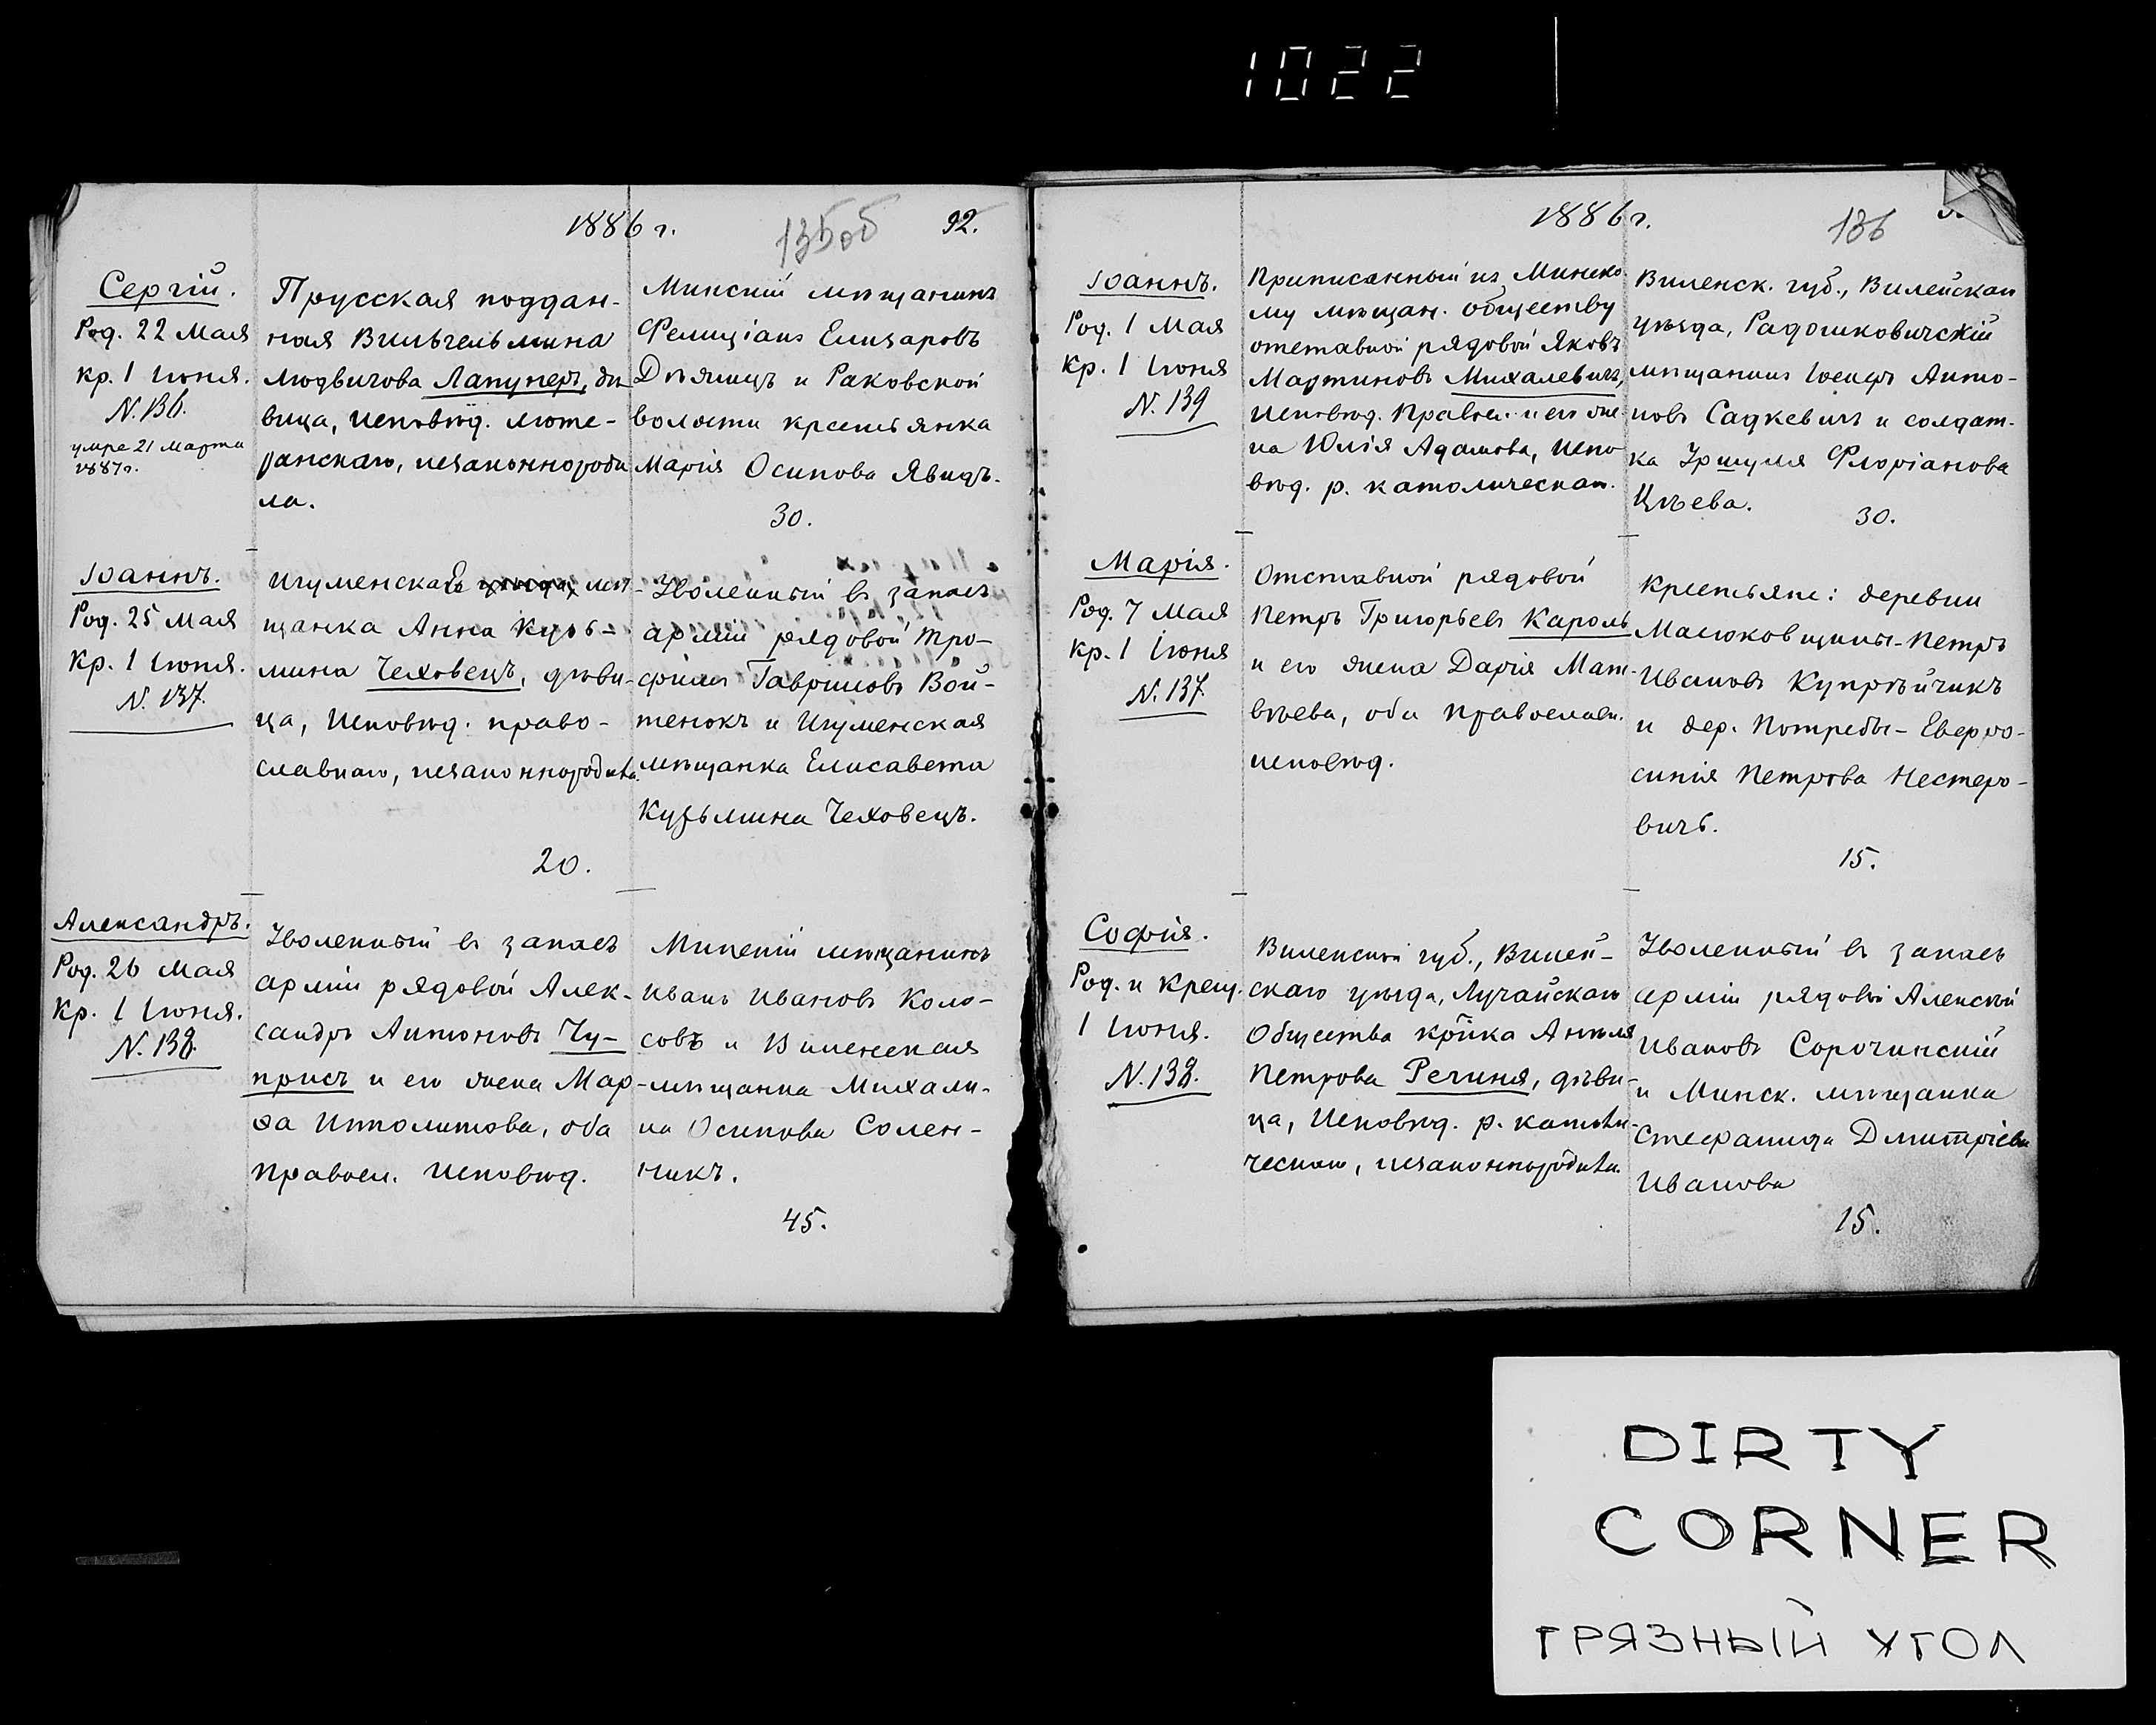 1022
1886 г.
135об
92.
Сергій.
Род. 22 Мая
кр. 1 Июня.
N. 136.
умре 21 Марта
1887 г.
Прусская поддан-
ная Вильгельмина
Людвигова Лапунеръ, дѣ-
вица, исповѣд. люте-
ранскаго, незаконнороди
ла.
Минскій мѣщанинъ
Фелиціанъ Елизаровъ
и Раковской
волости крестьянка
Марія Осипова Явидъ.
30.
Іоаннъ.
Род. 25 Мая
Кр. 1 Июня.
N. 137.
Игуменская мѣ-
щанка Анна Кузь-
мина Чеховецъ, дѣви-
ца, исповѣд. право-
славнаго, незаконнородила.
20.
Уволенный въ запасъ
арміи рядовой Тро-
фимъ Гавриловъ Вой-
тенокъ и Игуменская
мѣщанка Елисавета
Кузьмина Чеховецъ.
Александръ.
Род. 26 Мая
Кр. 1 Июня.
N. 138.
Уволенный въ запасъ
арміи рядовой Алек-
сандръ Антоновъ Чу-
присъ и его жена Мар-
ѳа Ипполитова, оба
правосл. исповѣд.
Минскій мѣщанинъ
Иванъ Ивановъ Коло-
совъ и Виленская
мѣщанка Михали-
на Осипова Солен-
никъ.
45.
1886 г.
136
Іоаннъ.
Род. 1 Мая
Кр. 1 Июня
N. 139
Приписанный къ Минско-
му мѣщан. обществу
отставной рядовой Яковъ
Мартиновъ Михалевичъ,
исповѣд. правосл. и его же-
на Юлія Адамова, испо
вѣд. р. католическаг.
Виленск. губ., Вилейскаго
уѣзда, Радошковичскій
мѣщанинъ Іосифъ Анто-
новъ Садкевичъ и солдат-
ка Уршуля Флоріанова
Цѣева.
30.
Марія.
Род. 7 Мая
Кр. 1 Іюня
N. 137.
Отставной рядовой
Петръ Григорьевъ Кароль
и его жена Дарія Мат-
вѣева, оба православн.
исповѣд.
Крестьяне: деревни
Масюковщины - Петръ
Ивановъ Купрѣйчикъ
и дер. Потребы - Евфро-
синія Петрова Нестеро-
вичъ.
15.
Софія.
Род. и Крещ.
1 Июня.
N. 138.
Виленской губ., Вилей-
скаго уѣзда, Лучайскаго
Общества кр-нка Анеля
Петрова Речиня, дѣви-
ца, исповѣд. р. католи-
ческаго, незаконнородила.
Уволенный въ запасъ
арміи рядовой Алексѣй
Ивановъ Сорочинскій
и Минск. мѣщанка
Стефанида Дмитріева
Иванова
15.
DIRTY
CORNER
ГРЯЗНЫЙ УГОЛ